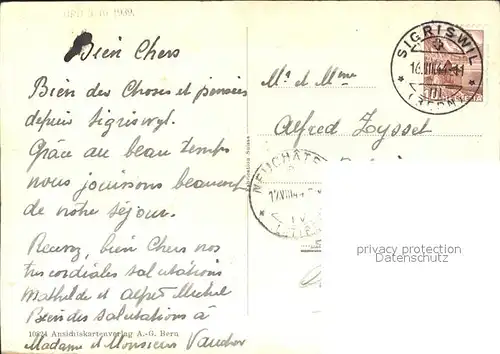 Bien Chers
Bien des Choses et pensées
depuis Sigriswyl.
Grâce au beau temps
nous jouissons beaucoup
de notre séjour.
Recevez, bien Chers nos
très cordiales salutations
Mathilde et Alfred Michel
Bien des salutations à
Madame et Monsieur Vaucher
10824 Ansichtskartenverlag A.-G. Bern
SIGRISWIL
(BERN)
Mr et Mme
Alfred Zysset
NEUCHÂTE
IV
privacy protection